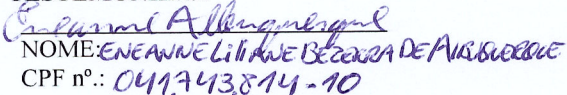 Eneanne Albuquerque
NOME: ENEANNE LILIANE BEZERRA DE ALBUQUERQUE
CPF nº.: 041.743.814-10